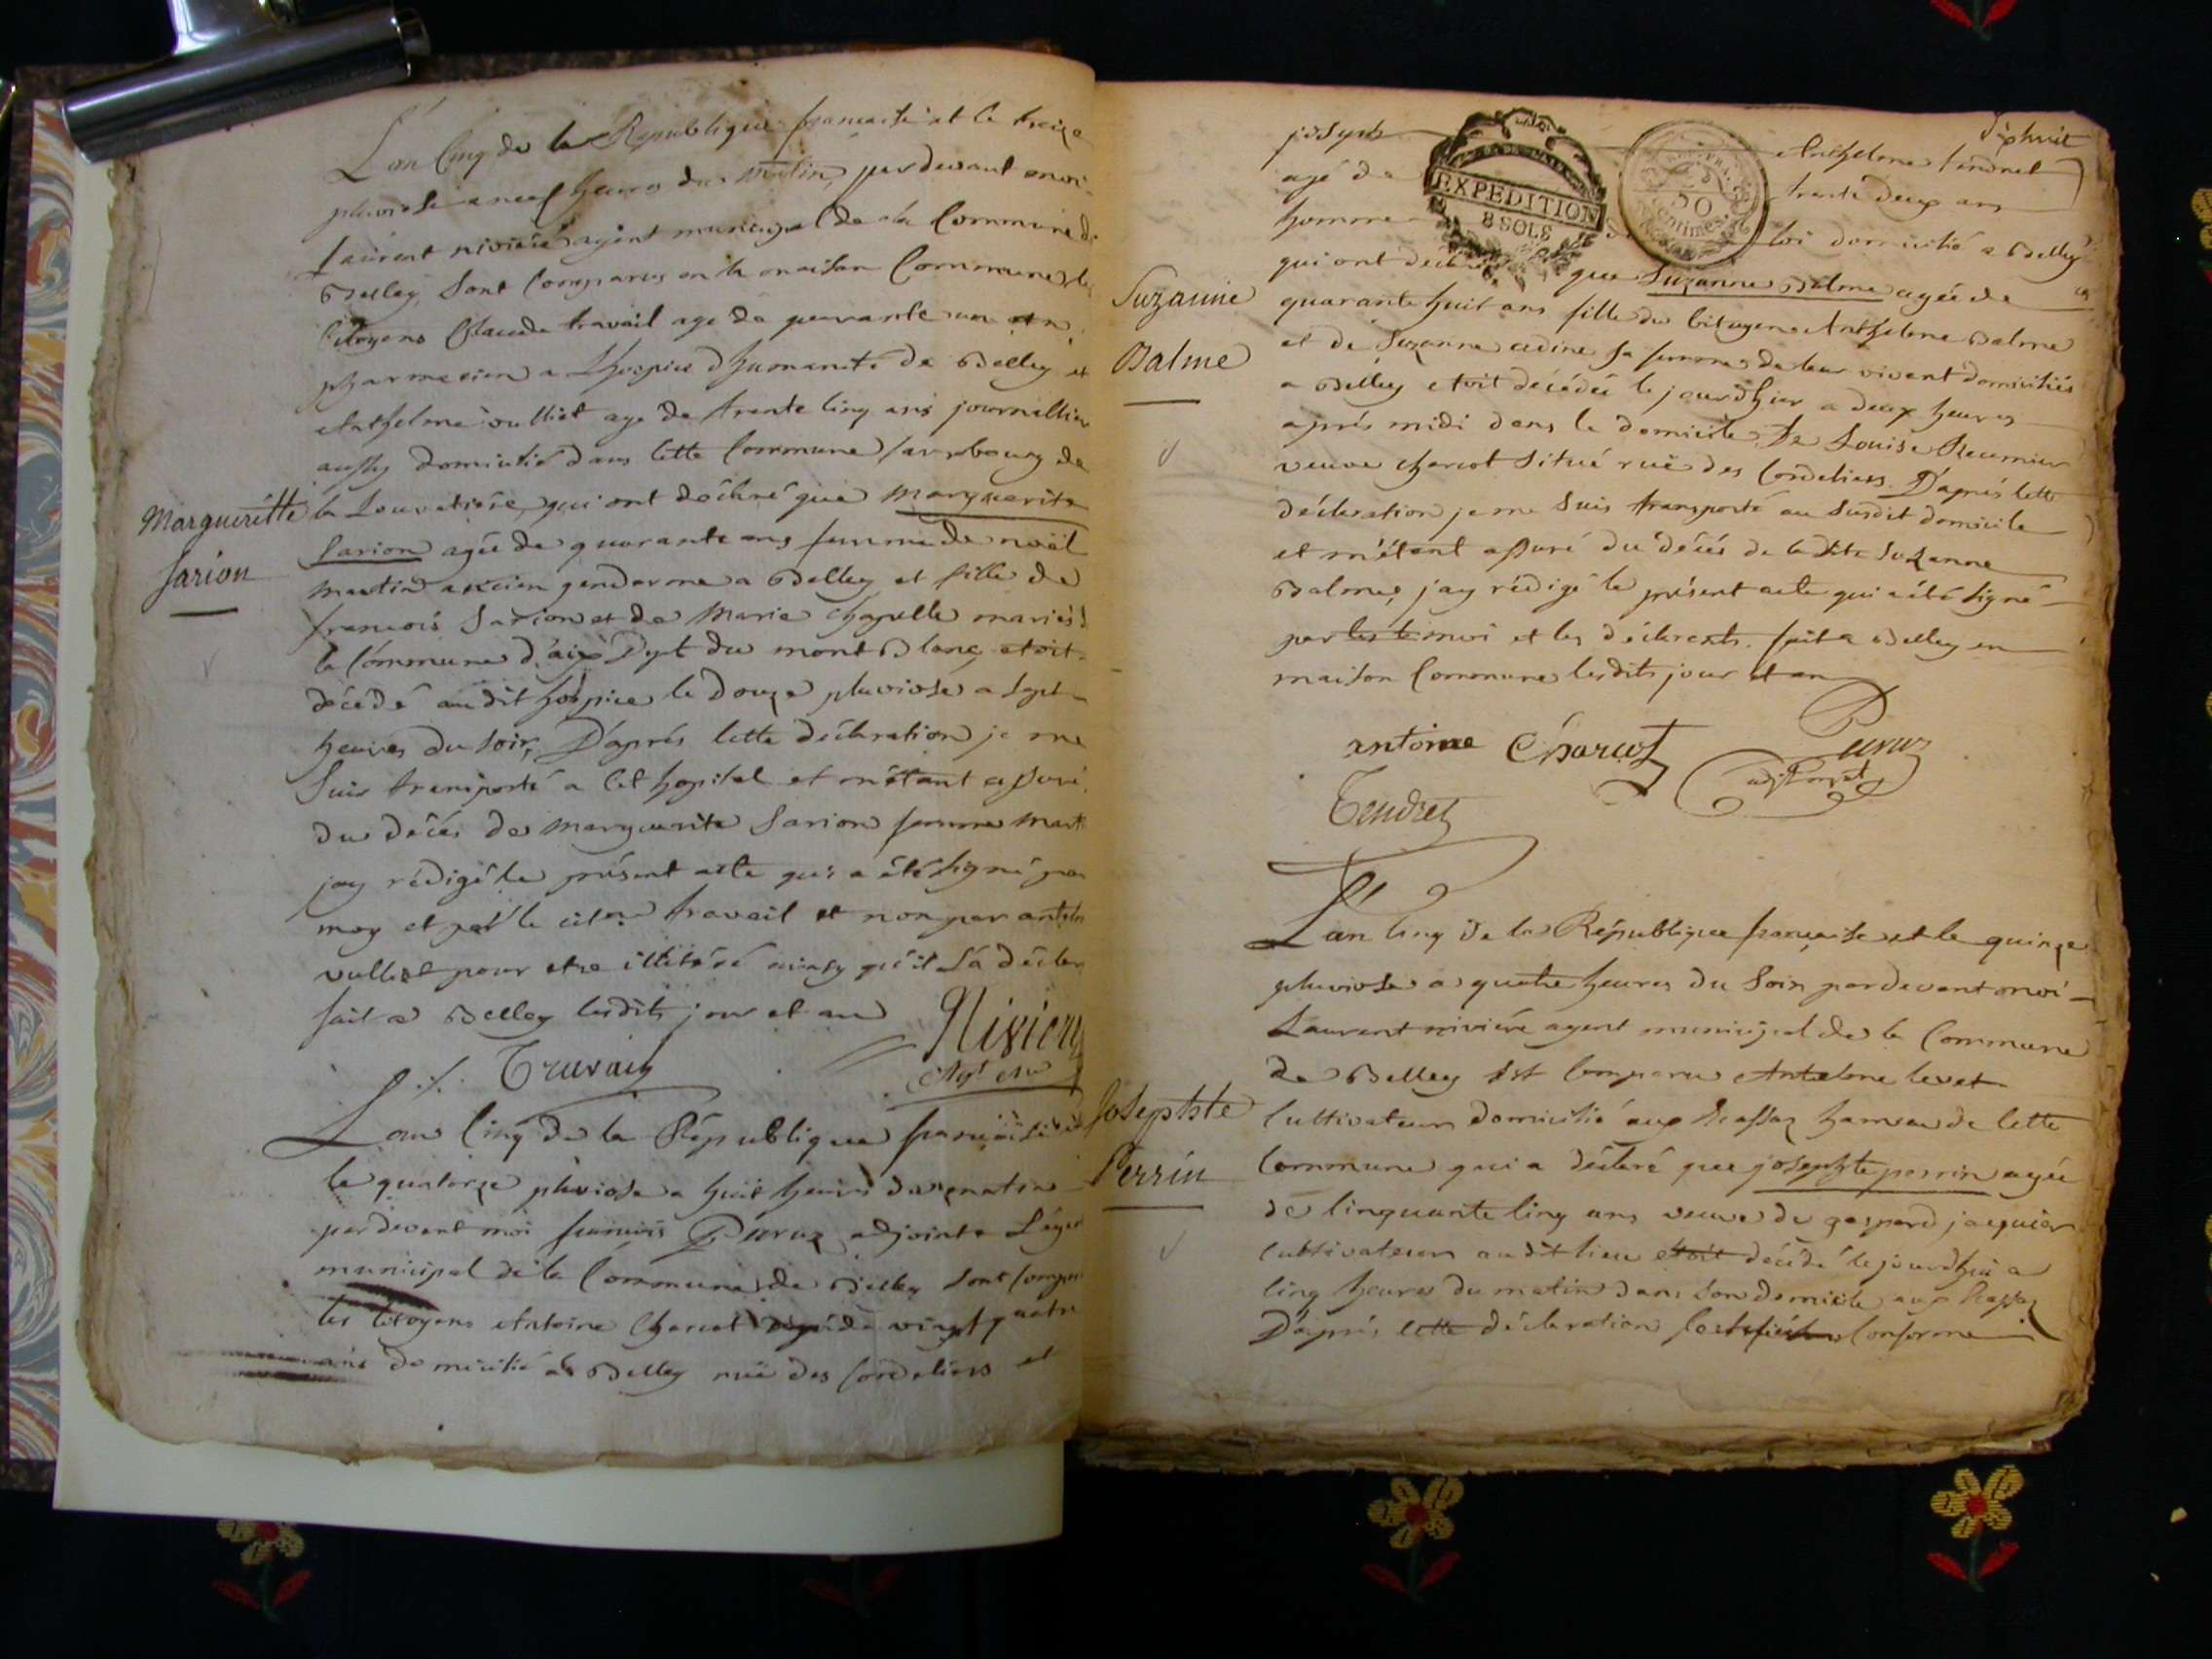 L'an Cinq de la Republique francaise et le treize
pluviose a neuf heures du matin, par devant moi
Laurent niviere agent municipal de la Commune de
Belley, Sont Comparus en la maison Commune, les
Citoyens Claude travail age de quarante un an
pharmacien a Lhospice dhumanité de Belley et
Anthelme vulliet age de trente Cinq ans journallier
aussy domicilié dans Cette Commune faurbourg de
la Louvatiere, qui ont déclaré que Marguerite
Sarion agée de quarante ans femme de noël
Martin ancien gendarme a Belley et fille de
francois Sarion et de Marie Chapelle mariés
la Commune d'aix Dpt du mont Blanc, etoit
décédé audit hospice le Douze pluviose a Sept
heures du Soir, D'aprés Cette déclaration je me
Suis transporté a Cet hopital et m'étant assuré
du décés de Marguerite Sarion femme Martin
jay rédigé le présent acte qui a été signé par
moy et par le citen travail et non par anthelme
vulliet pour etre illitéré ainsy qu'il L'a déclaré
fait a Belley lesdits jour et an
Niviere
Travail
Agt
Marguerítte
Sarion
L'an Cinq de la République francaise et
le quatorze pluviose a huit heures du matin
par devant moi francois Peruz adjoint a L'agent
municipal de la Commune de Belley Sont Comparus
les Citoyens Antoine Charcot agé de vingt quatre
ans domicilié a Belley rue des Cordeliers et
dixhuit
joseph Anthelme Tendret
agé de trente deux ans
homme de loi domicilié a Belley
EXPEDITION
8 SOLS
REP. FRA.
50
centimes
qui ont déclaré que Suzanne Balme agée de
quarante huit ans fille du Citoyen Anthelme Balme
et de Suzanne sa femme de leur vivant domiciliés
a Belley etoit décédée le jourdhier a deux heures
aprés midi dans le domicile de Louise
veuve charcot Situé ruë des Cordeliers. D'aprés Cette
déclaration je me Suis transporté au Susdit domicile
et m'étant assuré du décés de ladite Suzanne
Balme, jay rédigé le présent acte qui a été signé
par moi et les déclarents. fait a Belley en
maison Commune lesdits jour et an
Suzanne
Balme
antoine Charcot
Peruz
adjt
Tendret
L'an Cinq de la République française et le quinze
pluviose a quatre heures du Soir par devant moi
Laurent niviere agent municipal de la Commune
de Belley Est Comparu Antelme levet
Cultivateur domicilié aux hameau de Cette
Commune qui a déclaré que josephte perrin agée
de Cinquante Cinq ans veuve de gaspard jacquier
Cultivateur audit lieu etoit décédé le jourdhui a
Cinq heures du matin dans Son domicile aux
D'aprés Cette déclaration Conforme
Josephte
Perrin